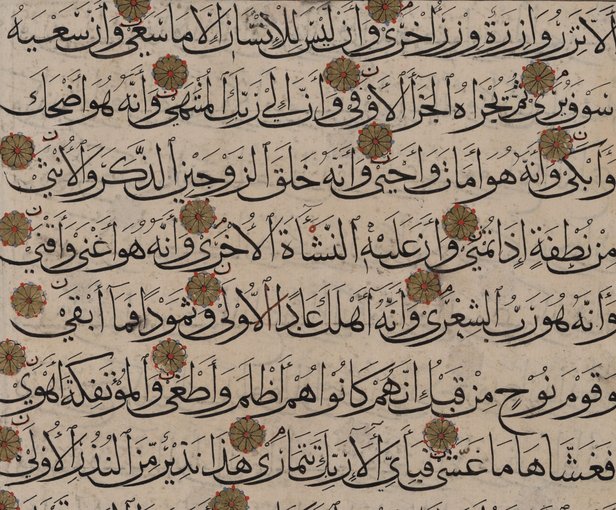 ألا تزر وازرة وزر أخرى وأن ليس للإنسان إلا ما سعى وأن سعيه
سوف يرى ثم يجزاه الجزاء الأوفى وأن إلى ربك المنتهى وأنه هو أضحك
وأبكى وأنه هو أمات وأحيى وأنه خلق الزوجين الذكر والأنثى
من نطفة إذا تمنى وأن عليه النشأة الأخرى وأنه هو أغنى وأقنى
وأنه هو رب الشعرى وأنه أهلك عادا الأولى وثمودا فما أبقى
وقوم نوح من قبل إنهم كانوا هم أظلم وأطغى والمؤتفكة أهوى
فغشاها ما غشى فبأي آلاء ربك تتمارى هذا نذير من النذر الأولى